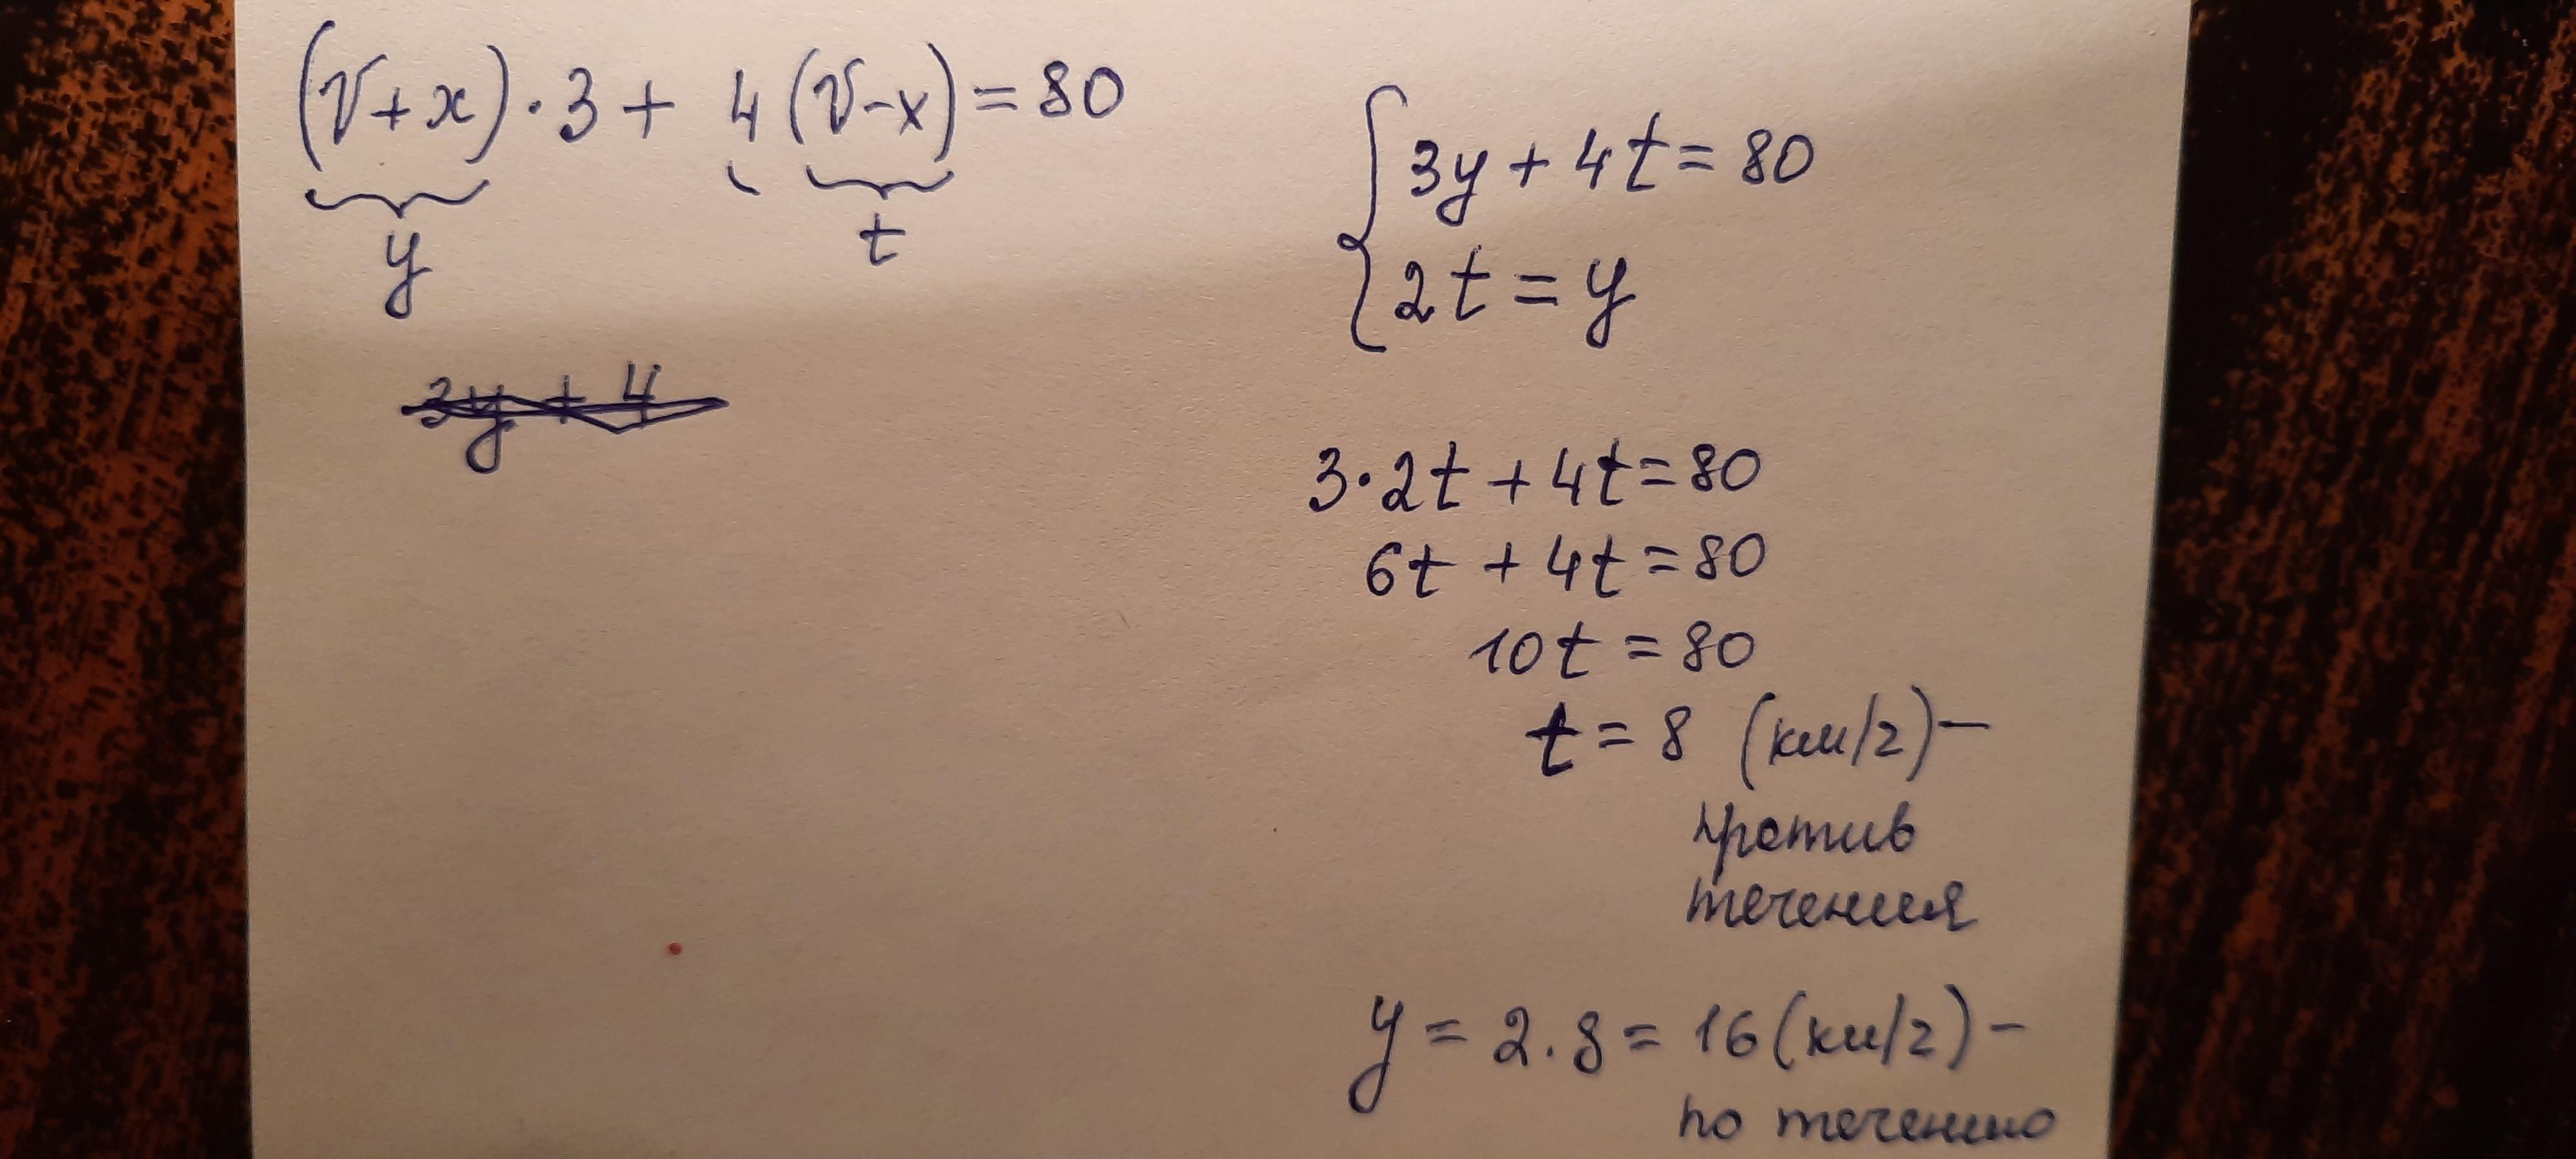 (V+x)·3+ 4(V-x)=80
y
t
3y + 4
3y + 4t = 80
2t = y
3·2t + 4t = 80
6t + 4t = 80
10t = 80
t = 8 (км/г) –
против
течения
y = 2.8 = 16 (км/г) –
по течению